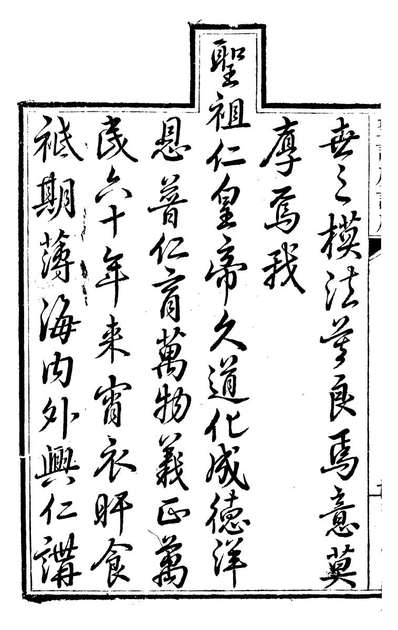 世之模法莫良焉意莫
厚焉我
聖祖仁皇帝久道化成德洋
恩普仁育萬物義正萬
民六十年來宵衣旰食
祗期薄海內外興仁講